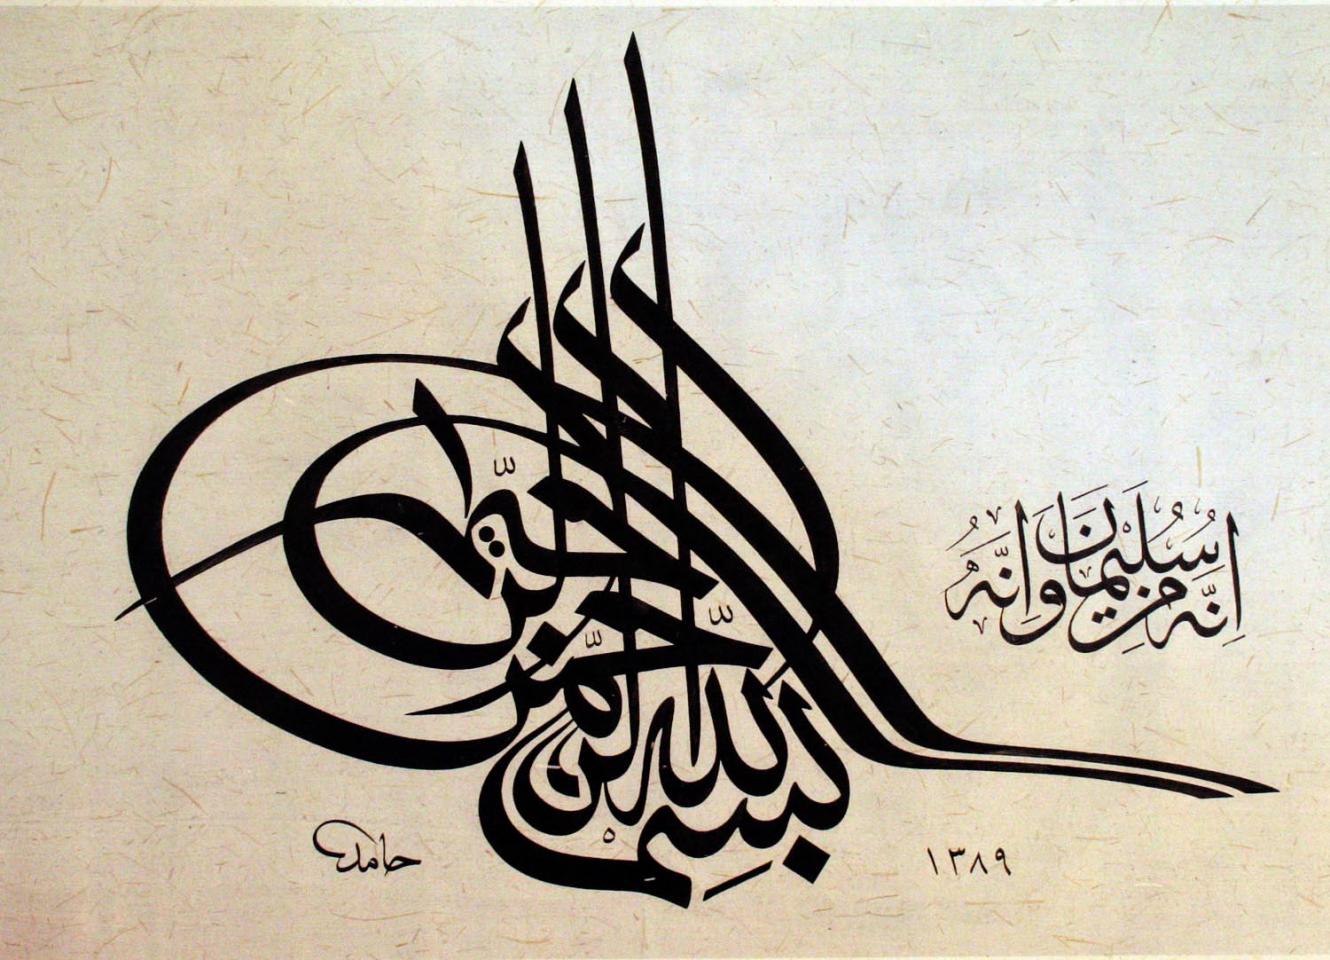 بسم الله الرحمن الرحيم
اِنَّهُ مِنْ سُلَيْمَانَ وَاِنَّهُ
حامد
١٣٨٩